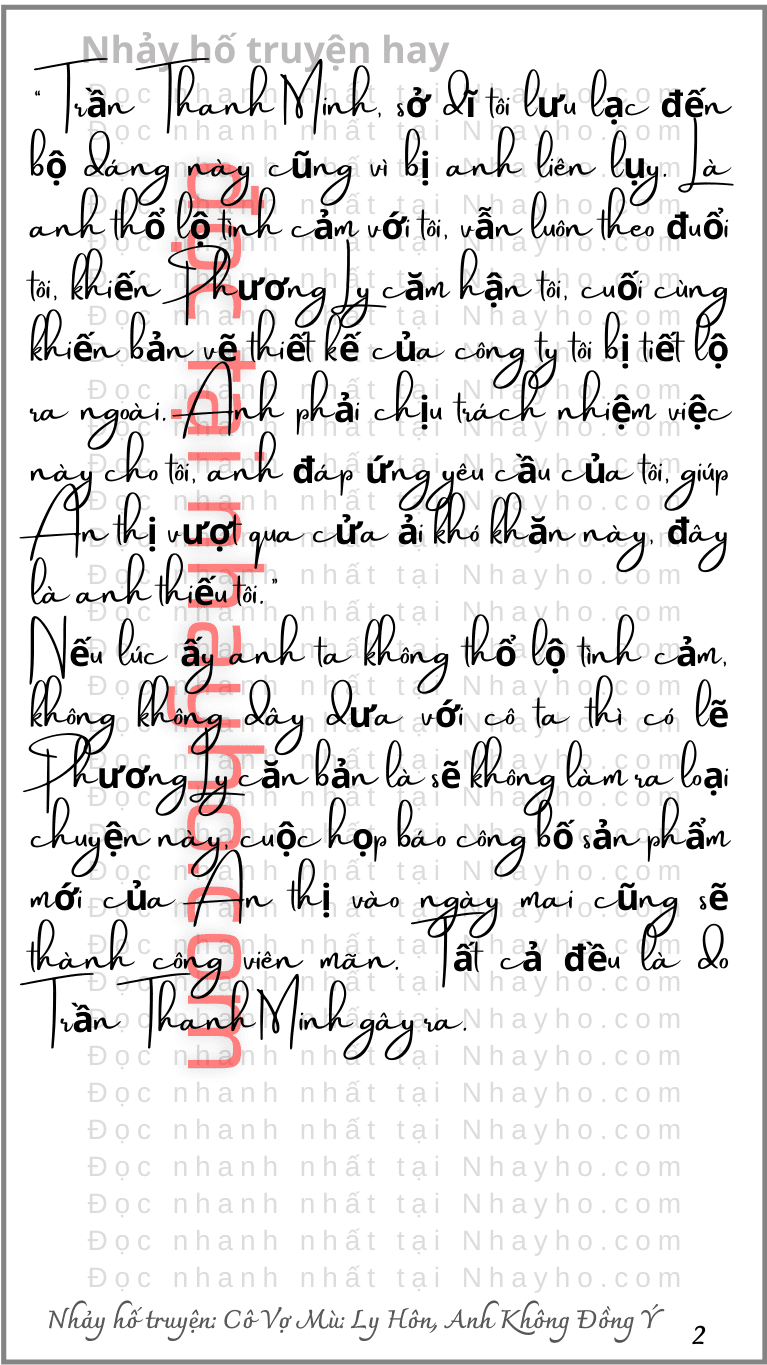 Nhảy hố truyện hay
“Trần Thanh Minh, sở dĩ tôi lưu lạc đến
bộ dáng này cũng vì bị anh liên lụy. Là
anh thổ lộ tình cảm với tôi, vẫn luôn theo đuổi
tôi, khiến Phương Ly căm hận tôi, cuối cùng
khiến bản vẽ thiết kế của công ty tôi bị tiết lộ
ra ngoài. Anh phải chịu trách nhiệm việc
này cho tôi, anh đáp ứng yêu cầu của tôi, giúp
An thị vượt qua cửa ải khó khăn này, đây
là anh thiếu tôi.”
Nếu lúc ấy anh ta không thổ lộ tình cảm,
không không dây dưa với cô ta thì có lẽ
Phương Ly căn bản là sẽ không làm ra loại
chuyện này, cuộc họp báo công bố sản phẩm
mới của An thị vào ngày mai cũng sẽ
thành công viên mãn. Tất cả đều là do
Trần Thanh Minh gây ra.
đọc tại nhayho.com
Đọc nhanh nhất tại Nhayho.com
Đọc nhanh nhất tại Nhayho.com
Đọc nhanh nhất tại Nhayho.com
Đọc nhanh nhất tại Nhayho.com
Đọc nhanh nhất tại Nhayho.com
Đọc nhanh nhất tại Nhayho.com
Đọc nhanh nhất tại Nhayho.com
Nhảy hố truyện: Cô Vợ Mù: Ly Hôn, Anh Không Đồng Ý
2